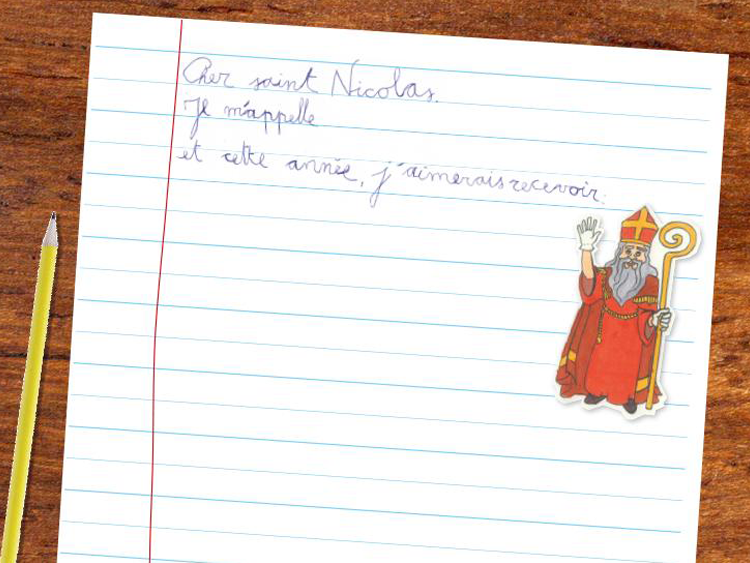 Cher saint Nicolas.
Je m'appelle
et cette année, j'aimerais recevoir: